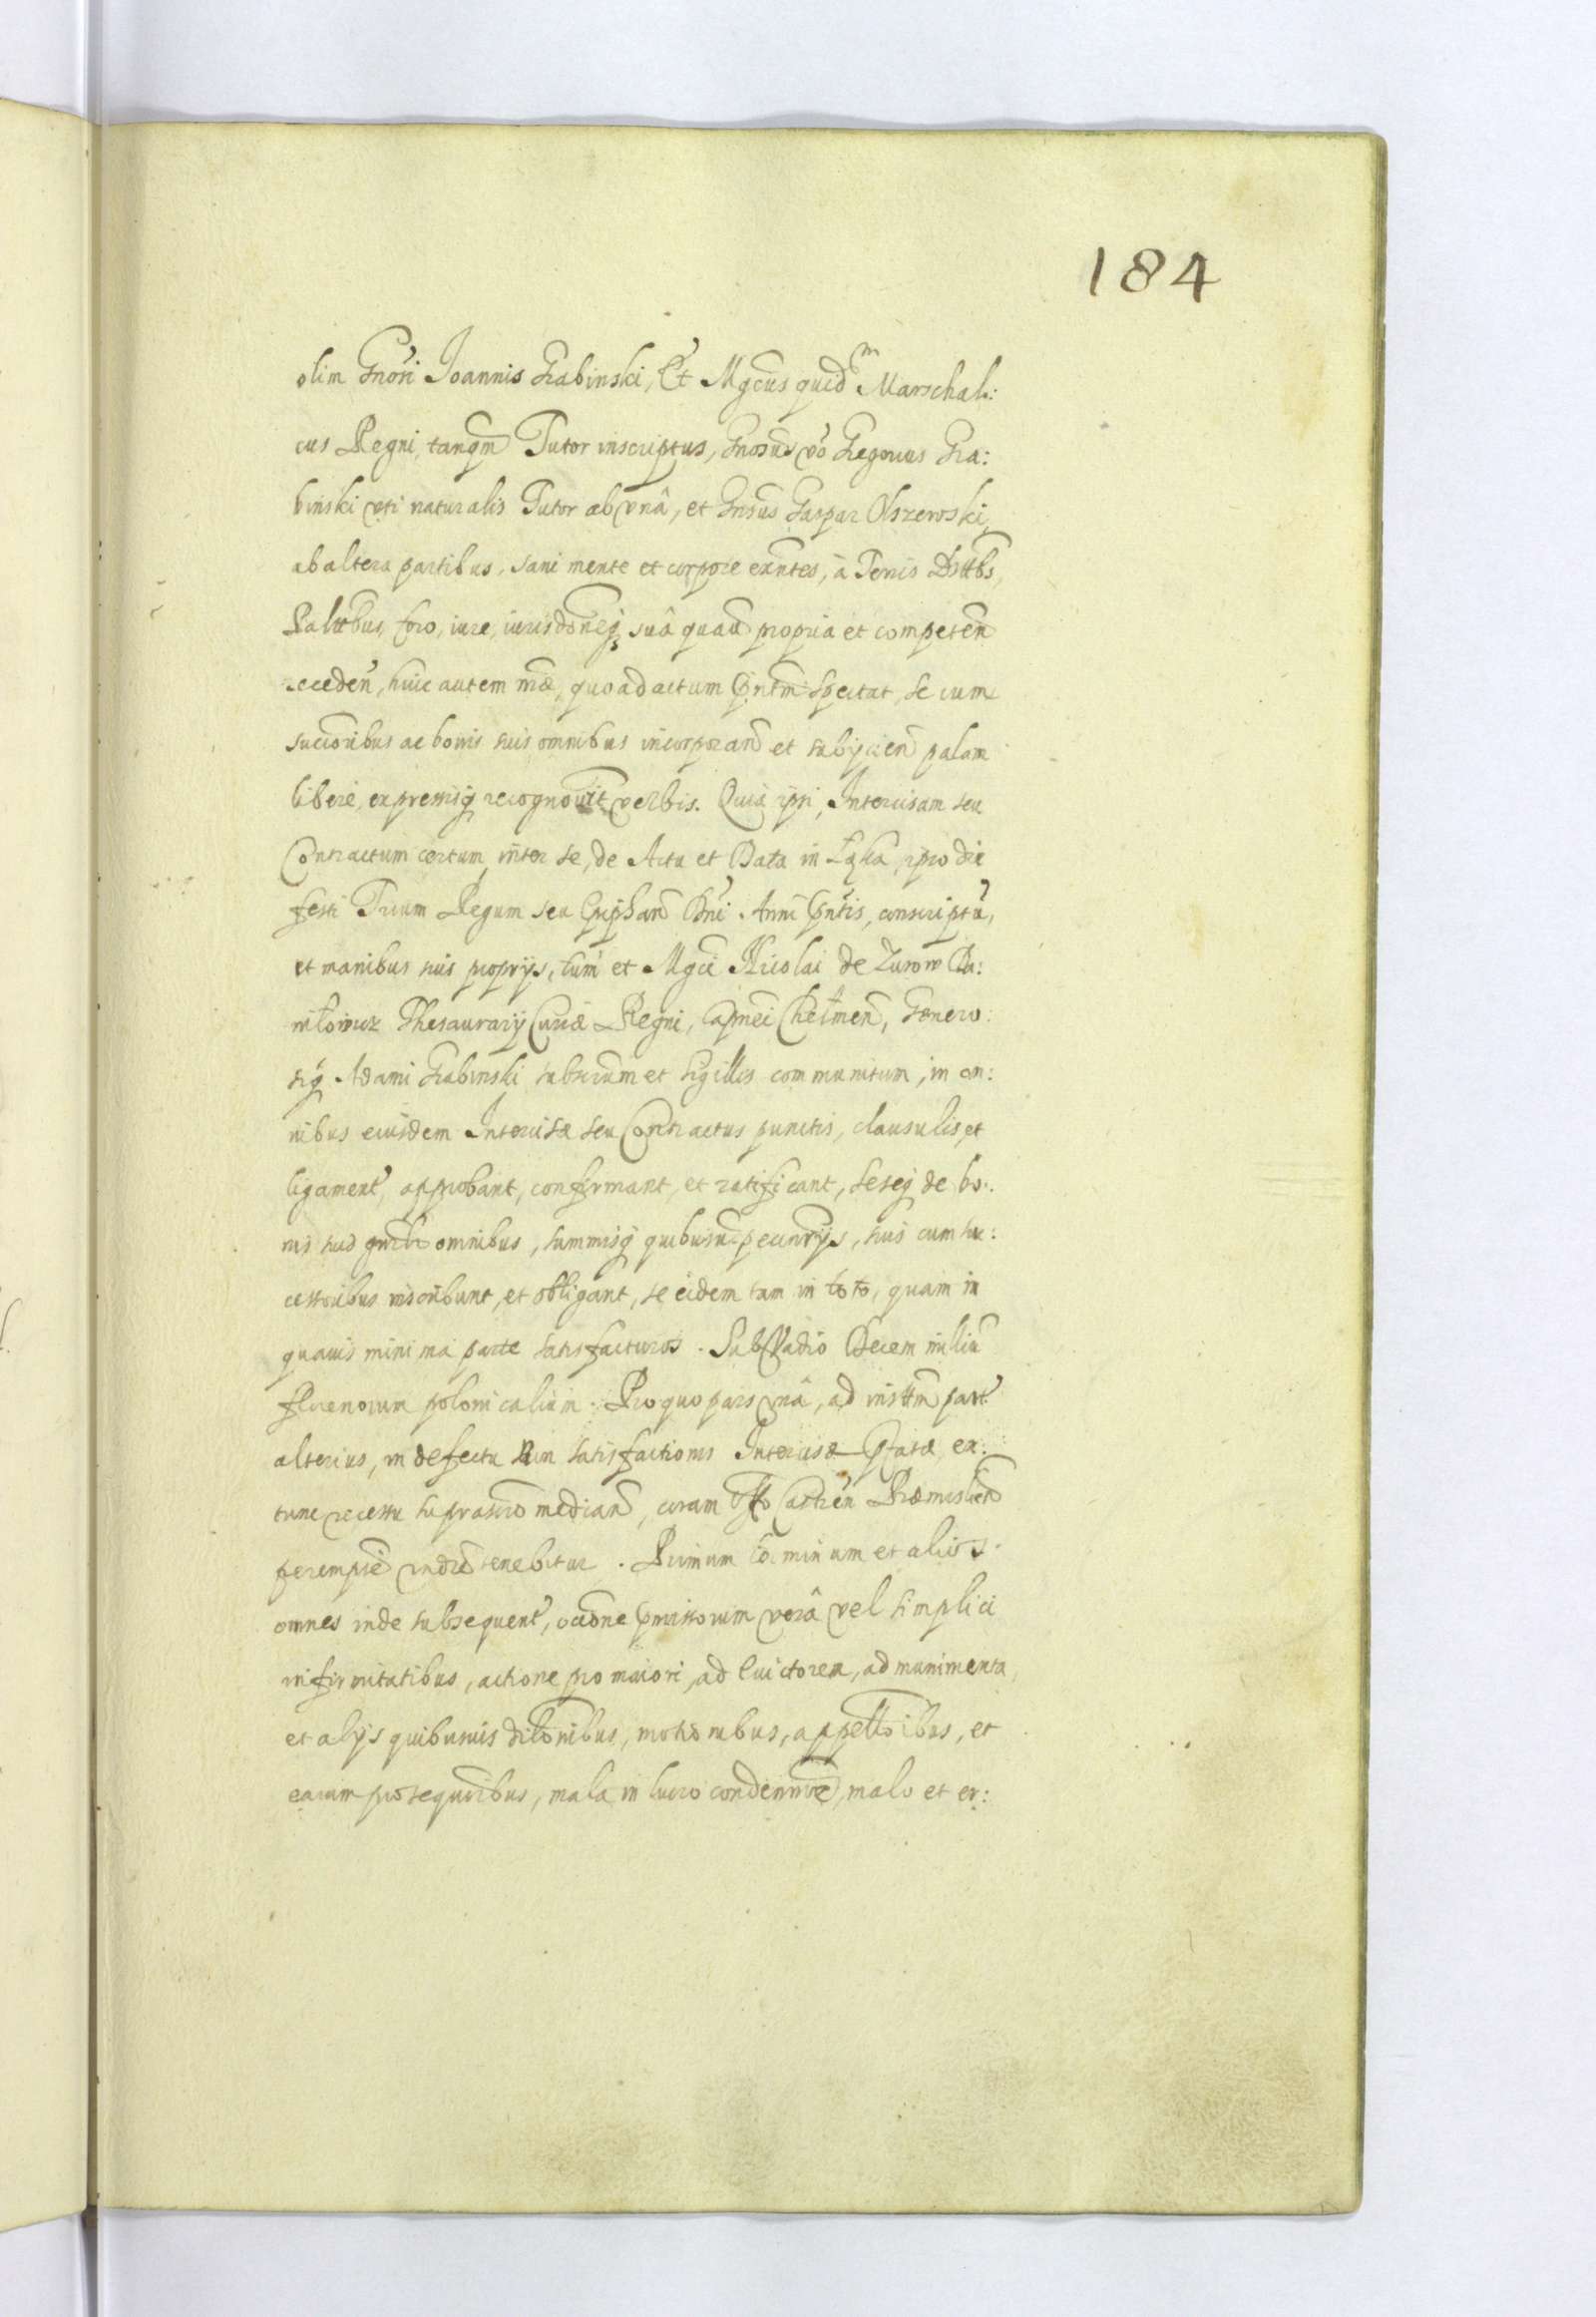 184
olim Gnosi Joannis Grabinski, Et Mgcus quidm Marschal:
cus Regni, tanqm Tutor inscriptus, Gnosus vo Gregorius Gra:
binski uti naturalis Tutor ab unâ, et Gnsus Gaspar Olszewski,
ab altera partibus, sani mente et corpore exntes, à Terris Dsttbs,
Palttbus, foro, iure, iurisdoneq suâ quavis propria et competen
receden, huic autem mae, quo ad actum pntm spectat, se cum
succoribus ac bonis suis omnibus incorporan et subijcien palam
liberè, expressisq recognovit verbis. Quia ipsi, Intercisam seu
Contractum certum, inter se, de Actu et Data in Łąka, ipso die
festi Trium Regum seu Epiphan Dni Anni pntis, conscriptu,
et manibus suis proprijs, tum et Mgci Nicolai de Zurow Da:
niłowicz Thesaurarij Curiæ Regni, Capnei Chełmen, Genero:
siq Adami Grabinski subscriam et sigillis communitum, in om:
nibus eiusdem Intercisæ seu Contractus punctis, clausulis, et
ligament, approbant, confirmant, et ratificant, seseq de bo:
nis suis gnrlr omnibus, summisq quibusuis pecunrijs, suis cum suc:
cessoribus inscribunt, et obligant, se eidem tam in toto, quam in
quauis minima parte satisfacturos. Sub Vadio Decem milliu
florenorum polonicalium. Pro quo pars una, ad insttm part
alterius, in defectu non satisfactionis Intercisæ pfatæ, ex
tunc recessu suprascro median, coram Offo Castren Præmislien
peremprie indre tenebitur. Primum terminum et alios
omnes inde subsequent, occone pmissorum verâ vel simplici
infirmitatibus, actione pro maiori, ad Euictorem, ad munimenta,
et alijs quibusuis dilonibus, motionibus, appelloibus, et
earum prosequonibus, mala in lucro condemnoe, malo et er: